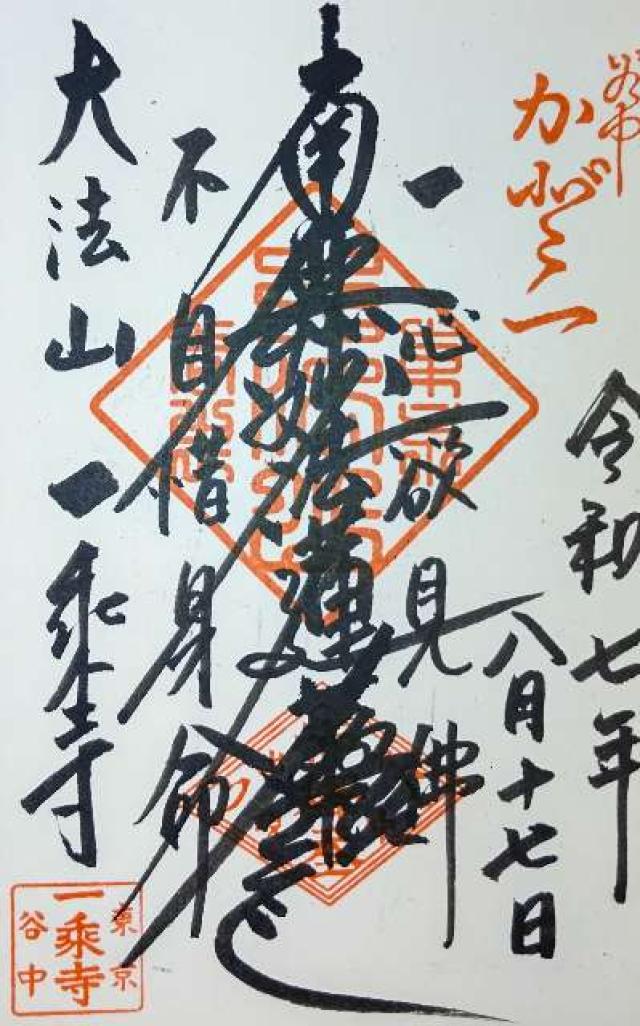 令和七年
八月十七日
一心欲見佛
南無妙法蓮華経
不自惜身命
大法山一乗寺
東京
一乗寺
谷中